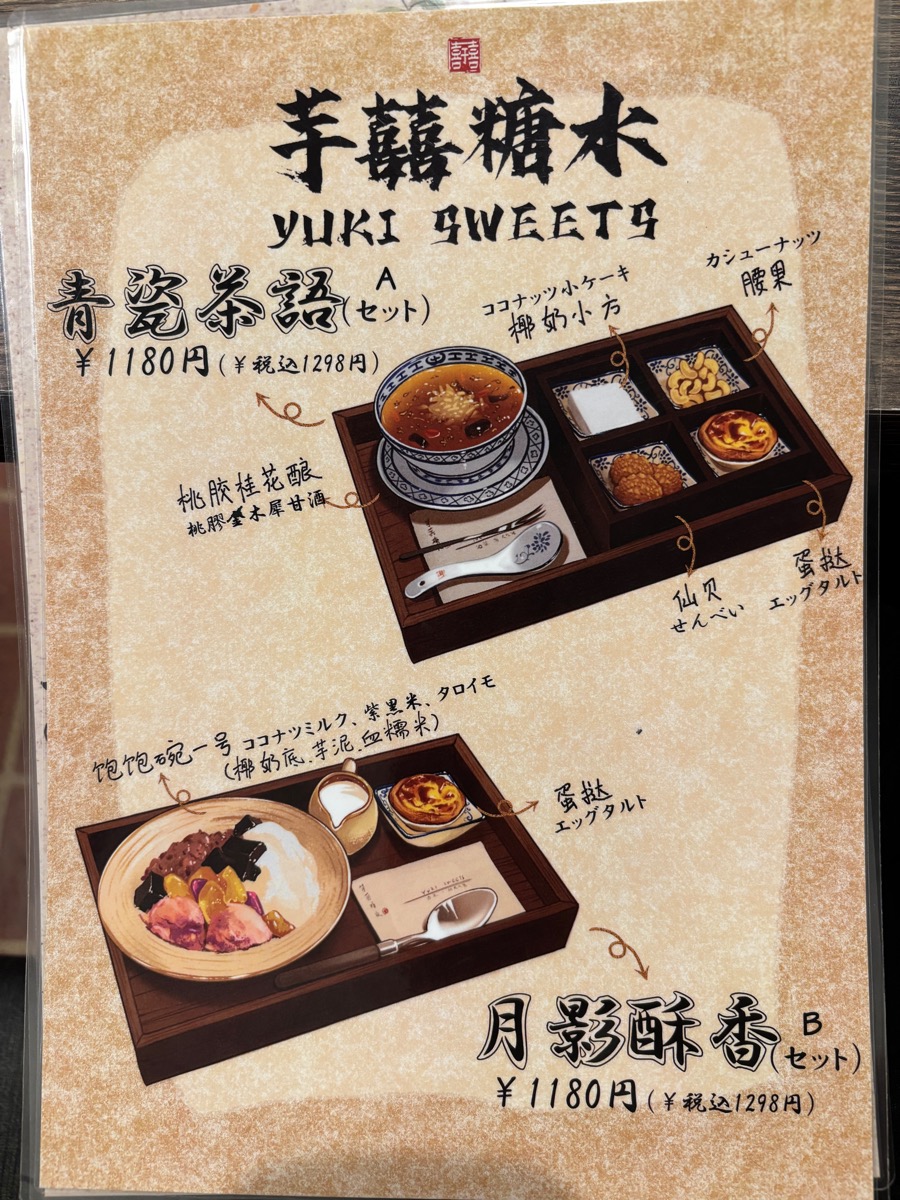 囍
芋囍糖水
YUKI SWEETS
青瓷茶語(Aセット)
¥1180円(¥税込1298円)
ココナッツ小ケーキ
椰奶小方
カシューナッツ
腰果
桃胶桂花酿
桃膠金木犀甘酒
仙贝
せんべい
蛋挞
エッグタルト
饱饱碗一号 ココナツミルク、紫黒米、タロイモ
(椰奶底.芋泥.血糯米)
蛋挞
エッグタルト
YUKI SWEETS
月影酥香(Bセット)
¥1180円(¥税込1298円)